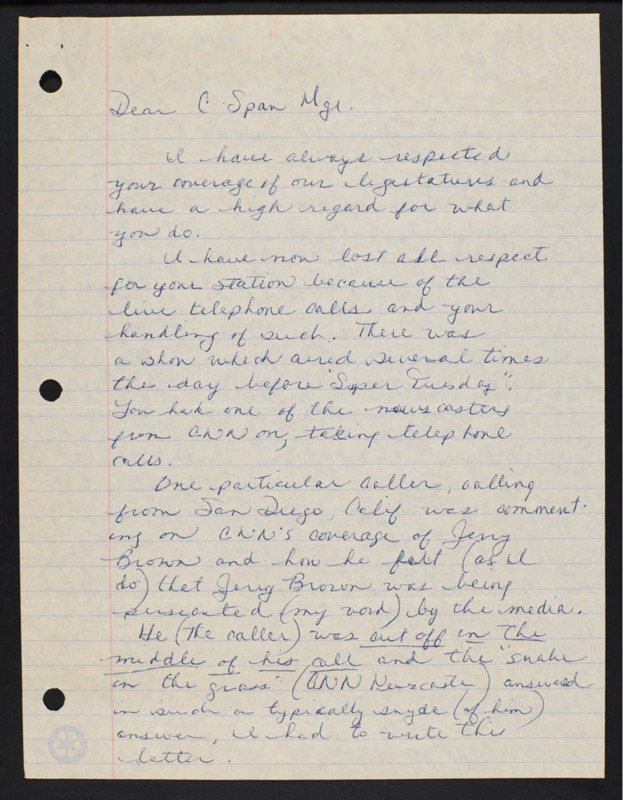 Dear C-Span Mgr.
I have always respected
your coverage of our legistatures and
have a high regard for what
you do.
I have now lost all respect
for your station because of the
live telephone calls and your
handling of such. There was
a show which aired several times
the day before "Super Tuesday".
You had one of the newscasters
from CNN on, taking telephone
calls.
One particular caller, calling
from San Diego, Calif was comment-
ing on CNN's coverage of Jerry
Brown and how he felt (as I
do) that Jerry Brown was being
persecuted (my word) by the media.
He (the caller) was cut off in the
middle of his call and the "snake
in the grass" (CNN Newscaster) answered
in such a typically snyde (of him)
answer, I had to write this
letter.